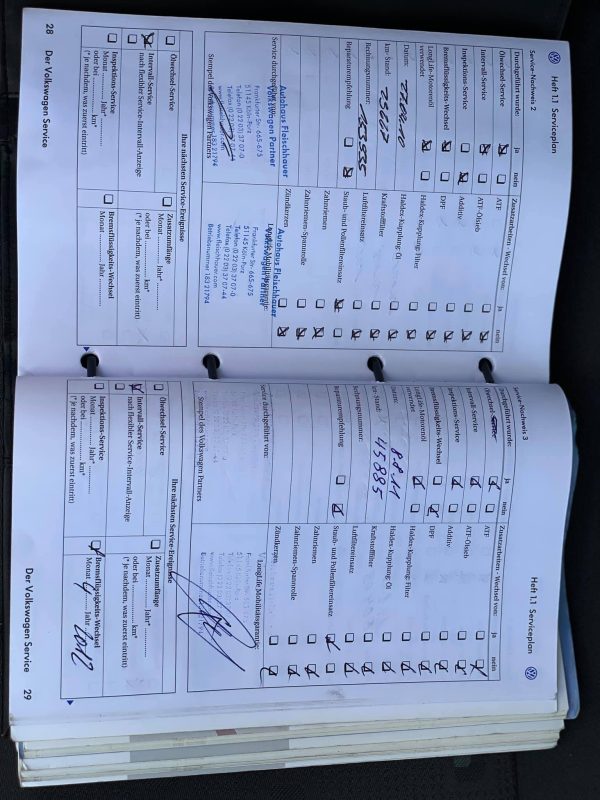 Heft 1.1 Serviceplan
Service-Nachweis 2
Durchgeführt wurde: ja nein
Ölwechsel-Service
Intervall-Service
Inspektions-Service
Bremsflüssigkeits-Wechsel
LongLife-Motorenöl
verwendet
Datum:
km-Stand:
Rechnungsnummer:
Reparaturempfehlung
Service durchgeführt von:
Autohaus Fleischhauer
Volkswagen Partner
Frankfurter Str. 665-675
51145 Köln-Porz
Telefon (0 22 03) 37 07-0
Telefax (0 22 03) 37 07-44
www.fleischhauer.com
Stempel des Volkswagen Partners
Zusatzarbeiten - Wechsel von: ja nein
ATF
ATF-Ölsieb
Additiv
DPF
Haldex-Kupplung: Filter
Haldex-Kupplung: Öl
Kraftstofffilter
Luftfiltereinsatz
Staub- und Pollenfiltereinsatz
Zahnriemen
Zahnriemen-Spannrolle
Zündkerzen
LongLife Mobilitätsgarantie:
Autohaus Fleischhauer
Volkswagen Partner
Frankfurter Str. 665-675
51145 Köln-Porz
Telefon (0 22 03) 37 07-0
Telefax (0 22 03) 37 07-44
www.fleischhauer.com
Betriebsnummer 183 21794
Ihre nächsten Service-Ereignisse
Ölwechsel-Service
Intervall-Service
nach flexibler Service-Intervall-Anzeige
Inspektions-Service
Monat ............ Jahr* ............
oder bei ............ km*
(* je nachdem, was zuerst eintritt)
Zusatzumfänge
Monat ............ Jahr* ............
oder bei ............ km*
(* je nachdem, was zuerst eintritt)
Bremsflüssigkeits-Wechsel
Monat ............ Jahr ............
28 Der Volkswagen Service
Heft 1.1 Serviceplan
Service-Nachweis 3
Durchgeführt wurde: ja nein
Ölwechsel-Service
Intervall-Service
Inspektions-Service
Bremsflüssigkeits-Wechsel
LongLife-Motorenöl
verwendet
Datum: 8 8 11
km-Stand: 45885
Rechnungsnummer:
Reparaturempfehlung
Service durchgeführt von:
Stempel des Volkswagen Partners
Zusatzarbeiten - Wechsel von: ja nein
ATF
ATF-Ölsieb
Additiv
DPF
Haldex-Kupplung: Filter
Haldex-Kupplung: Öl
Kraftstofffilter
Luftfiltereinsatz
Staub- und Pollenfiltereinsatz
Zahnriemen
Zahnriemen-Spannrolle
Zündkerzen
LongLife Mobilitätsgarantie:
Ihre nächsten Service-Ereignisse
Ölwechsel-Service
Intervall-Service
nach flexibler Service-Intervall-Anzeige
Inspektions-Service
Monat ............ Jahr* ............
oder bei ............ km*
(* je nachdem, was zuerst eintritt)
Zusatzumfänge
Monat ............ Jahr* ............
oder bei ............ km*
(* je nachdem, was zuerst eintritt)
Bremsflüssigkeits-Wechsel
Monat 4 Jahr 2012
Der Volkswagen Service 29